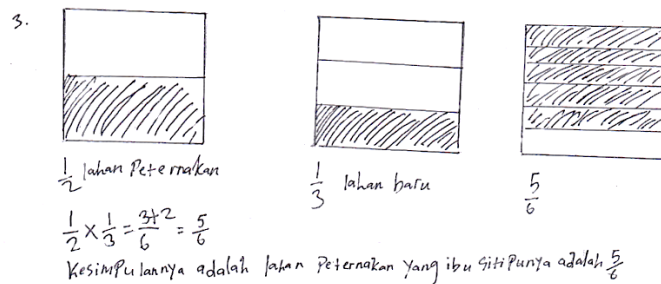 3.
1/2 lahan Peternakan
1/3 lahan baru
5/6
1/2 × 1/3 = 3+2/6 = 5/6
Kesimpulannya adalah lahan Peternakan yang ibu siti Punya adalah 5/6